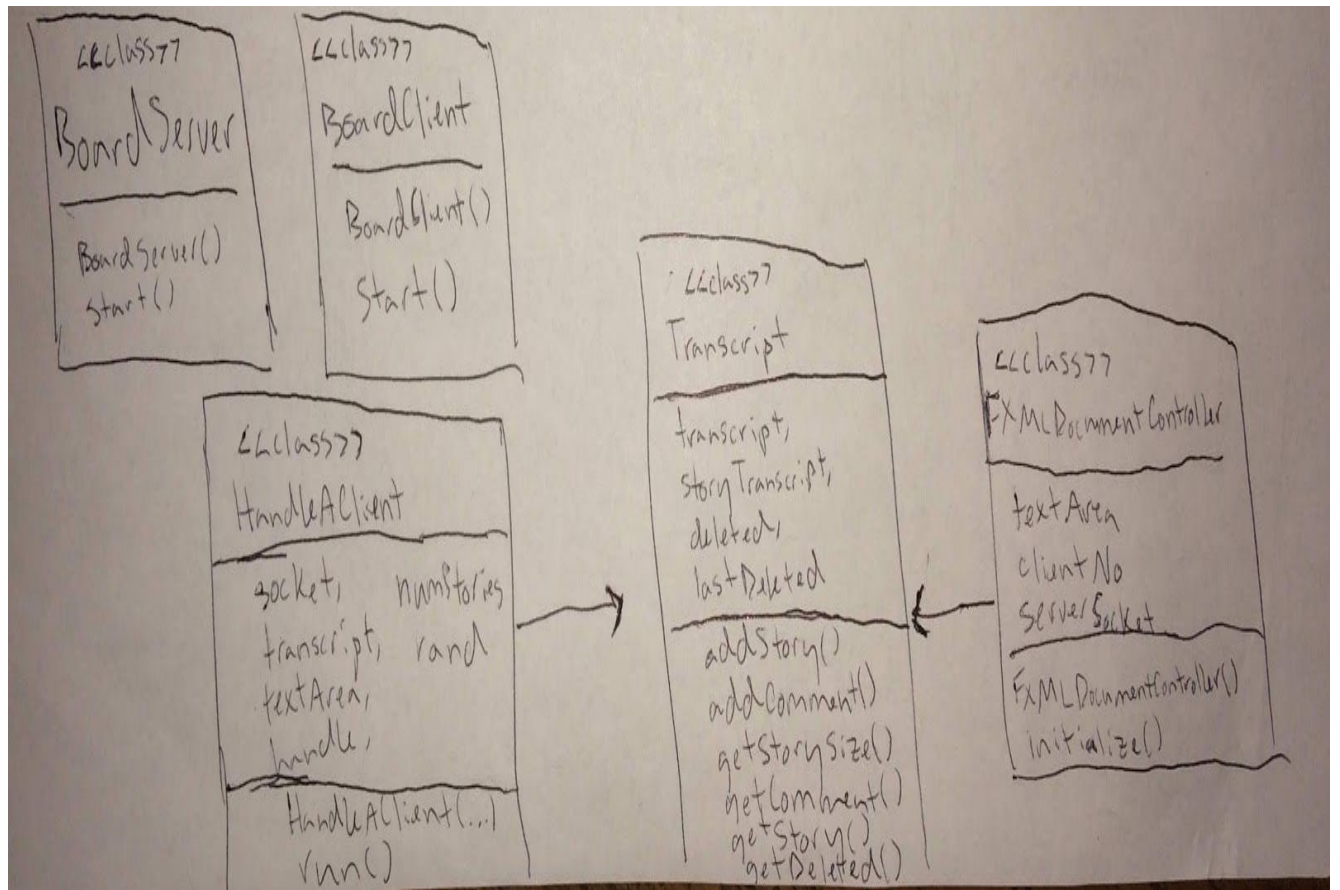 <<class>>
BoardServer
BoardServer()
start()
<<class>>
BoardClient
BoardClient()
Start()
<<class>>
HandleAClient
socket, numStories
transcript, rand
textArea,
handle,
HandleAClient(...)
run()
<<class>>
Transcript
transcript,
storyTranscript,
deleted,
lastDeleted
addStory()
addComment()
getStorySize()
getComment()
getStory()
getDeleted()
<<class>>
FXMLDocumentController
textArea
clientNo
serverSocket
FXMLDocumentController()
initialize()